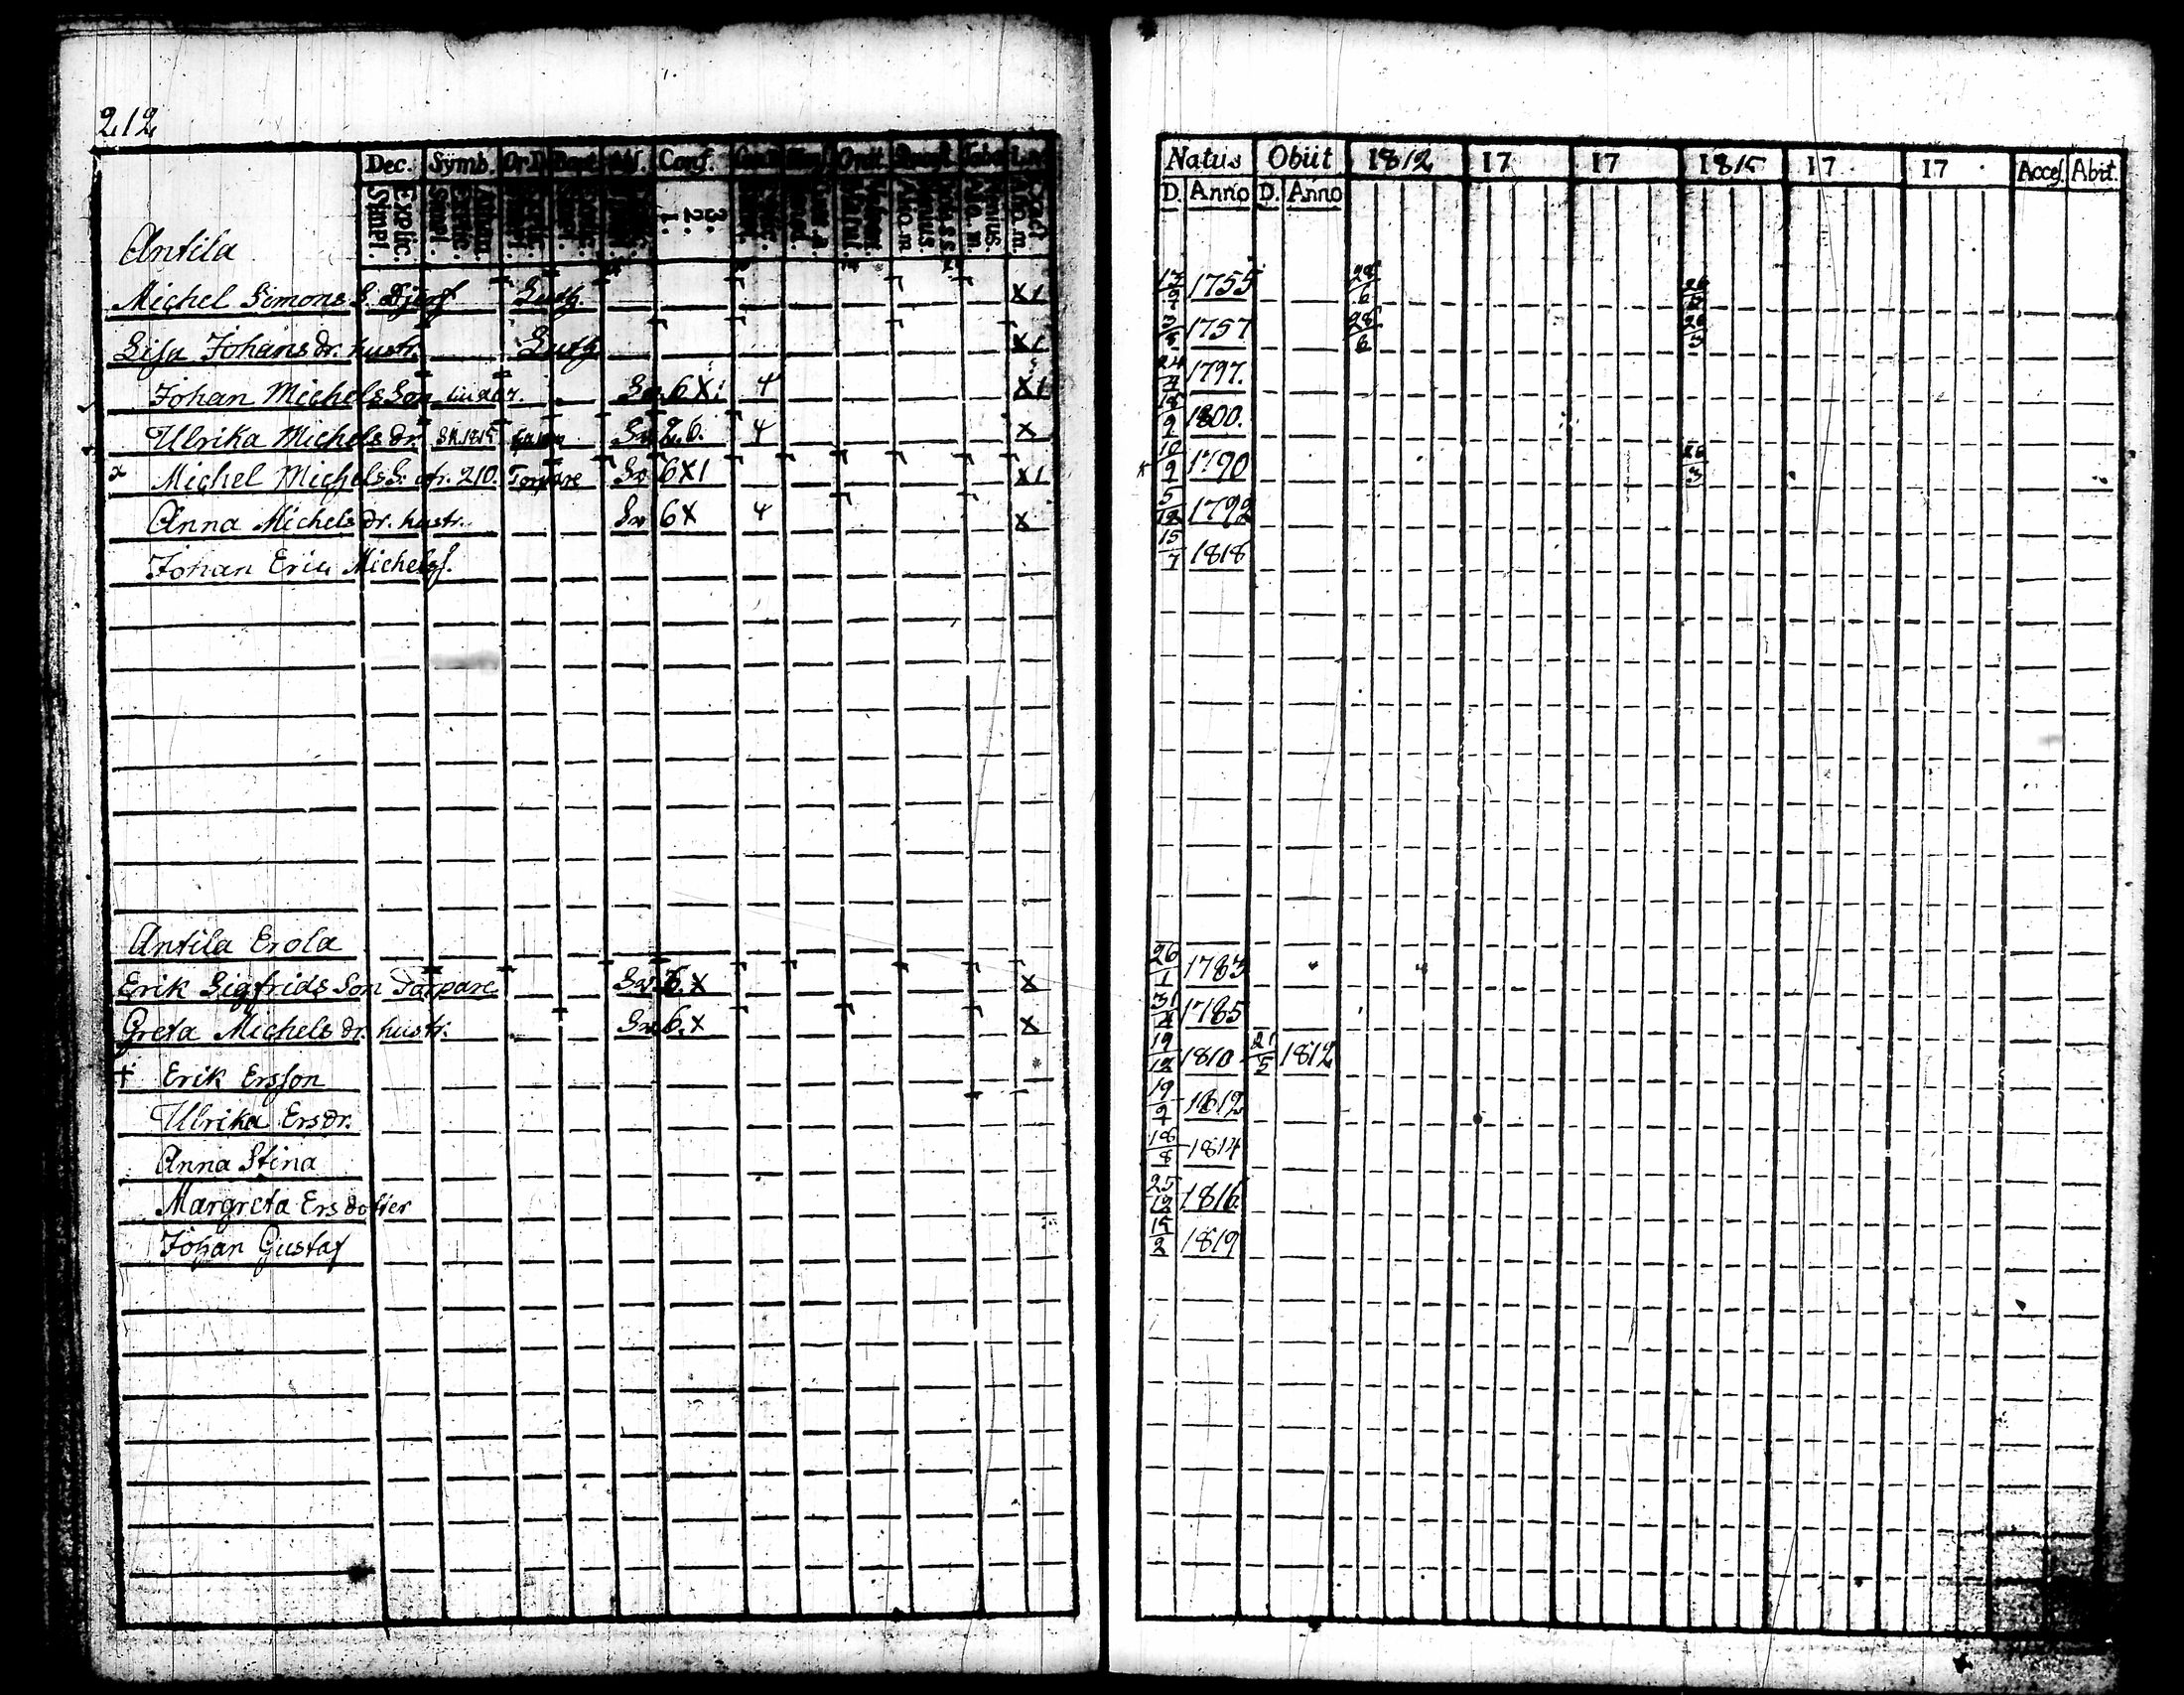 212
Dec. Symb. Or.D. Bapt. Abs. Conf. Orat. Tabu
Explic. Simpl. Athan. Explic. Simpl. 3. 2. 1.
Natus Obiit 1812 17 17 1815 17 17 Acces. Abit.
D. Anno D. Anno
Antila
Michel Simons S. Lutz. X1 1755 28/6
Lisa Johans dr. hustr. Lutz X1 3/5 1757 28/6 26/3
Johan Michels Son Sv. 6X1 4 X1 24/7 1797.
Ulrika Michels dr. Sv. 6. 4 X 1800.
Michel Michels S. fr. 210. Torpare Sv 6X1 X1 10/9 1790 26/3
Anna Michels dr. hustr. Sv 6X 4 X 5/12 1792
Johan Eric Michelss. 15/7 1818
Antila Erola
Erik Sigfrids Son Torpare Sv. 6. X X 26/1 1783
Greta Michels dr. hustr. Sv. 6. X X 1785
† Erik Ersson 19/12 1810 21/5 1812
Ulrika Ersdr. 19/9 1812
Anna Stina 18/8 1814
Margreta Ersdotter 25/12 1816.
Johan Gustaf 15/2 1819